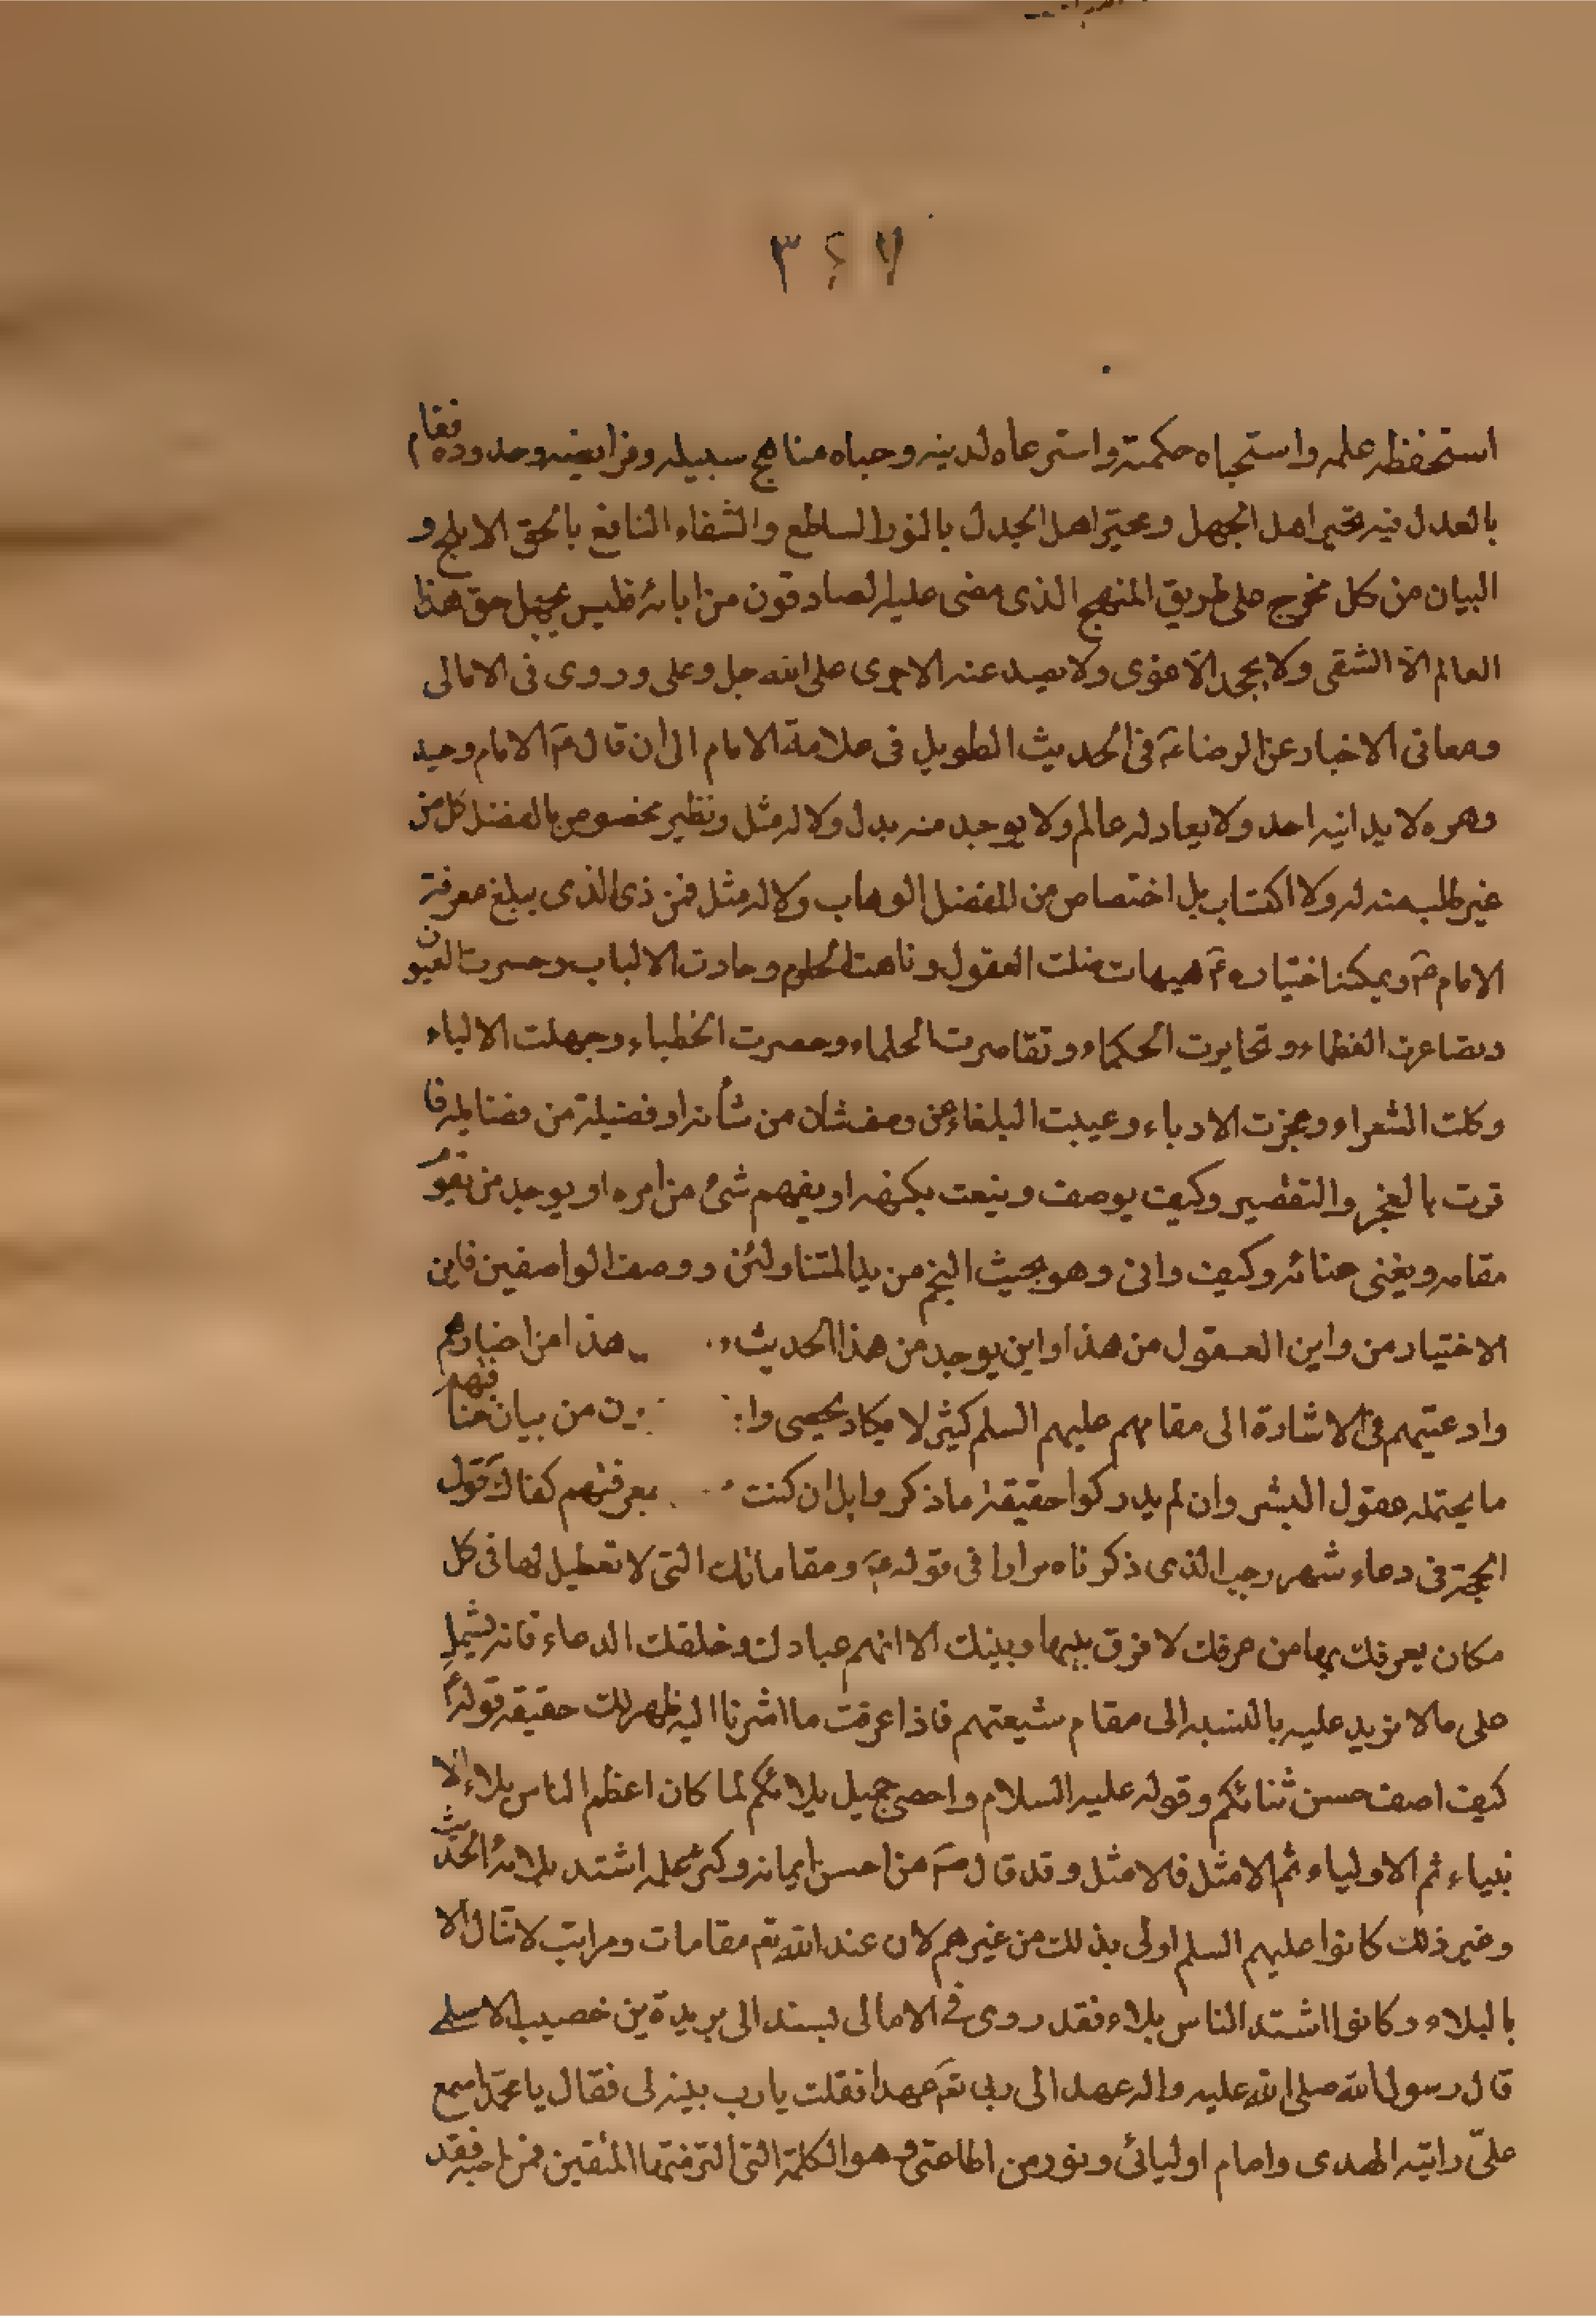 ٣٤٧
استحفظه علمه واستحباه حكمته واسترعاه لدينه وحباه مناهج سبيله وفرايضه وحدوده فقام
بالعدل فيه تحير اهل الجهل وتحيّر اهل الجدل بالنور الساطع والشفاء النافع بالحق الابلج و
البيان من كل مخرج على طريق المنهج الذى مضى عليه الصادقون من ابائه فليس يجهل حق هذا
العالم الا الشقى ولا يجحد الا غوى ولا يصد عنه الا جرى على الله جل وعلى وروى فى الامالى
ومعانى الاخبار عن الرضا عَ فى الحديث الطويل فى علامة الامام الى ان قال عَ الامام وحيد
دهره لا يدانيه احد ولا يعادله عالم ولا يوجد منه بدل ولا له مثل ونظير مخصوص بالفضل كل من
غير طلب منه له ولا اكتساب بل اختصاص من المفضل الوهاب ولا له مثل فمن ذى الذى يبلغ معرفة
الامام عَ ويمكنه اختياره عَ هيهات ضلت العقول وتاهت الحلوم وحارت الالباب وحسرت العيون
وتصاغرت العظماء وتحايرت الحكماء وتقاصرت الحلماء وحصرت الخطباء وجهلت الالباء
وكلت الشعراء وعجزت الادباء وعييت البلغاء عن وصف شان من شأنه او فضيلة من فضايله فا
قرت بالعجز والتقصير وكيف يوصف وينعت بكنهه او يفهم شئ من امره او يوجد من يقوم
مقامه ويغنى غنائه وكيف وانى وهو بحيث النجم من يد المتناولين ووصف الواصفين فاين
الاختيار من واين العـقول من هذا واين يوجد من هذا الحديث هذا من اخبارهم
وادعيتهم فى الاشارة الى مقامهم عليهم السلم كثير لا يكاد يحصى من بيان فهم
ما يحتمله عقول البشر وان لم يدركوا حقيقة ما ذكروا بل ان كنت معرفتهم كفاك قول
الحجة فى دعاء شهر رجب الذى ذكرناه مرارا فى قوله عَ ومقاماتك التى لا تعطيل لها فى كل
مكان يعرفك بها من عرفك لا فرق بينها وبينك الا انهم عبادك وخلقك الدعاء فانه يشمل
على ما لا مزيد عليه بالنسبه الى مقام شيعتهم فاذا عرفت ما اشرنا اليه ظهر لك حقيقة قوله عَ
كيف اصف حسن ثنائكم وقوله عليه السلام واحصى جميل بلائكم لما كان اعظم الناس بلاء الا
نبياء ثم الاولياء ثم الامثل فالامثل وقد قال عَ من احسن ايمانه وكثر عمله اشتد بلائه الحديث
وغير ذلك كانوا عليهم السلم اولى بذلك من غيرهم لان عند الله تعَ مقامات ومراتب لا تنال الا
بالبلاء وكانوا اشتد الناس بلاء فقد روى فى الامالى بسند الى بريدة بن خصيب الاسلمى
قال رسول الله صلى الله عليه واله عهد الى ربى تعَ عهدا فقلت يا رب بينه لى فقال يا محمّد اسمع
علىّ راية الهدى وامام اوليائى ونور من اطاعنى وهو الكلمة التى الزمتها المتقين فمن احبه فقد